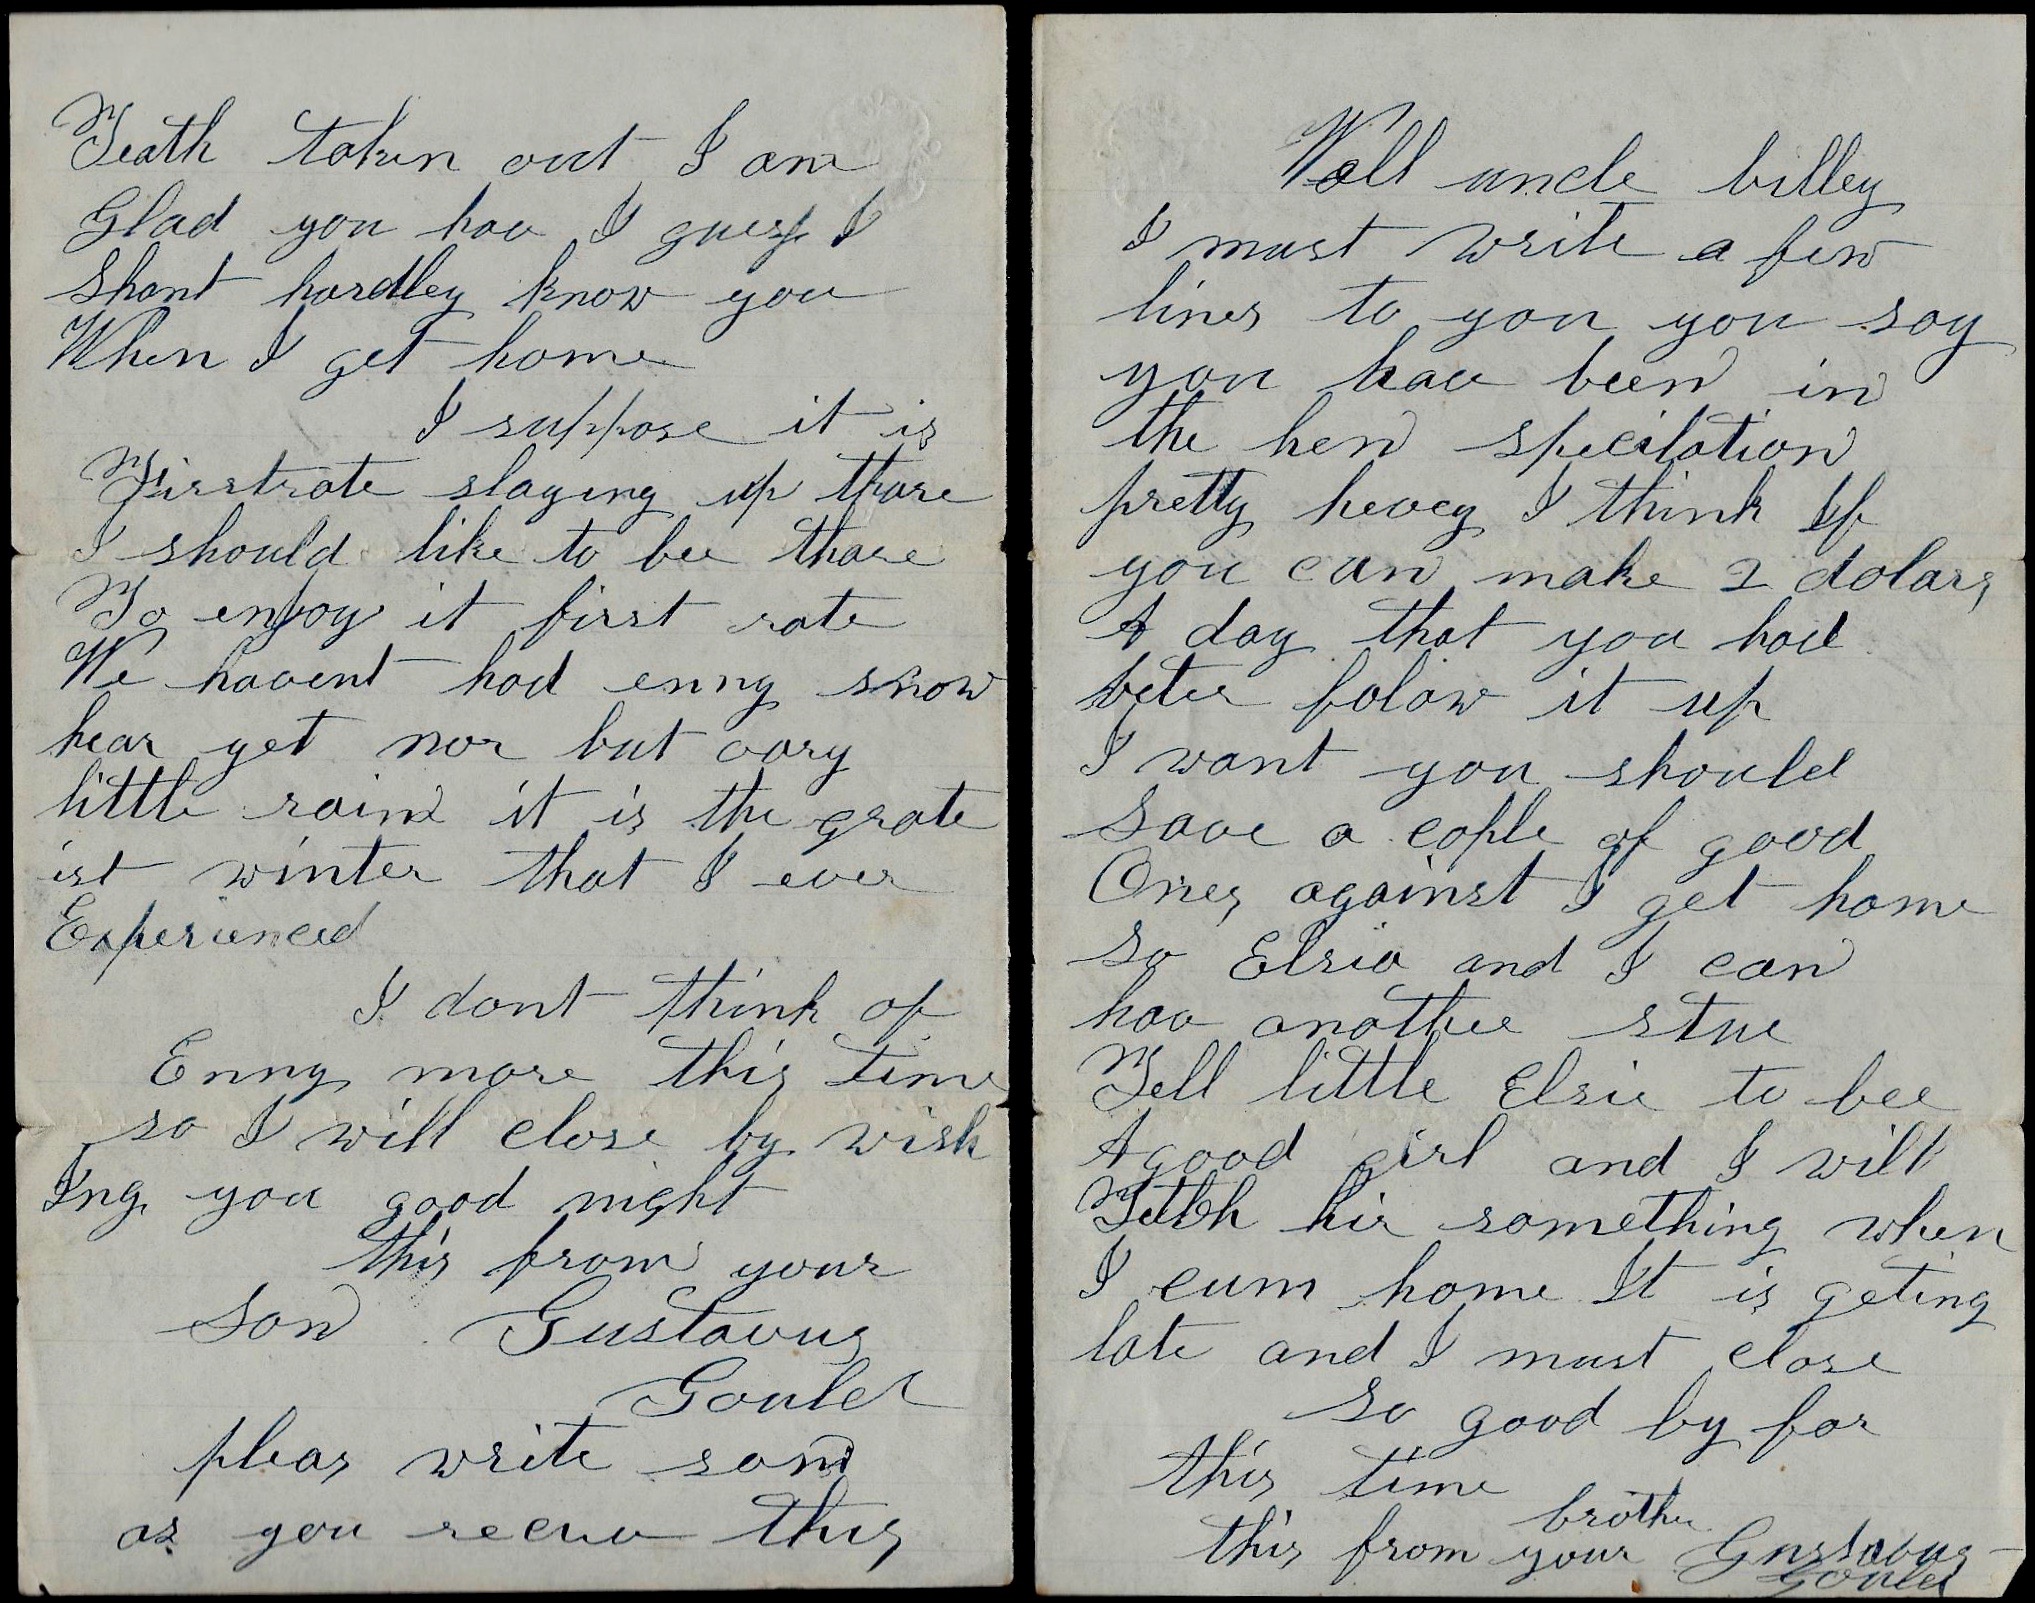 Teath taken out I am
Glad you hav I guess I
Shant hardley know you
When I get home
I suppose it is
Firstrate slaying up thare
I should like to bee thare
To enjoy it first rate
We havent had enny snow
hear yet nor but vary
little rain it is the grate
ist winter that I ever
Experienced
I dont think of
Enny more this time
so I will close by wish
Ing you good night
this from your
Son Gustavus
Gould
pleas write soon
as you receiv this
Well uncle billey
I must write a few
lines to you you say
you hav been in
the hen specilation
pretty hevey I think If
you can make 2 dolars
A day that you had
beter folow it up
I want you should
Save a cople of good
Ones against I get home
So Elsia and I can
hav another stue
Tell little Elsie to bee
A good girl and I will
Fetch hir something when
I cum home It is geting
late and I must close
So good by for
this time
this from your brother Gustavus
Gould